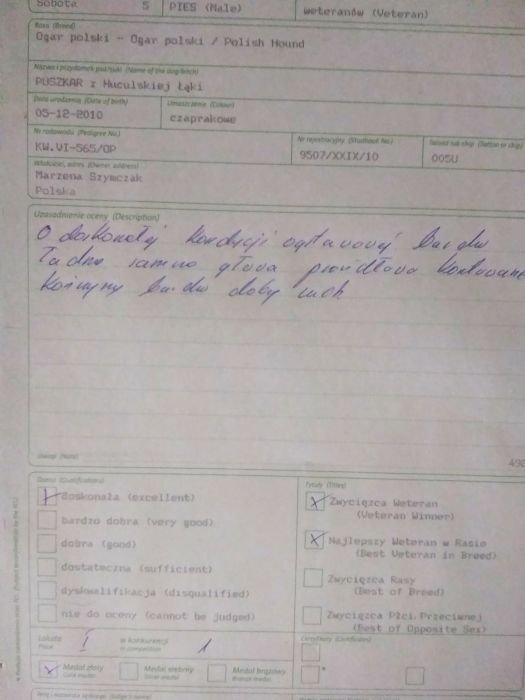 Sobota 5 PIES (Male) weteranów (Veteran)
Rasa (Breed)
Ogar polski - Ogar polski / Polish Hound
Nazwa i przydomek psa/suki (Name of the dog/bitch)
PUSZKAR z Huculskiej Łąki
Data urodzenia (Date of birth) Umaszczenie (Colour)
05-12-2010 czaprakowe
Nr rodowodu (Pedigree No.) Nr rejestracyjny (Studbook No.)
KW.VI-565/OP 9507/XXIX/10 005U
Właściciel, adres (Owner, address)
Marzena Szymczak
Polska
Uzasadnienie oceny (Description)
O doskonałej kondycji bardzo
ładna samcza głowa prawidłowa
kończyny bardzo dobry ruch
Uwagi (Note)
Ocena (Qualification) Tytuły (Titles)
doskonała (excellent) Zwycięzca Weteran
(Veteran Winner)
bardzo dobra (very good)
dobra (good) Najlepszy Weteran w Rasie
(Best Veteran in Breed)
dostateczna (sufficient) Zwycięzca Rasy
(Best of Breed)
dyskwalifikacja (disqualified)
nie do oceny (cannot be judged) Zwycięzca Płci Przeciwnej
(Best of Opposite Sex)
Lokata I w konkurencji 1 Certyfikaty (Certificates)
Place in competition
Medal złoty Medal srebrny Medal brązowy
Gold medal Silver medal Bronze medal